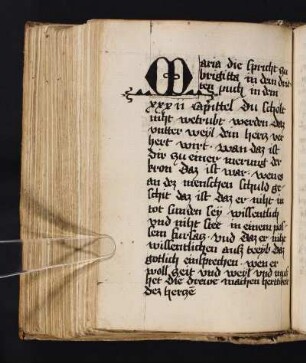 Maria die spricht zu
brigitta in dem drit
ten puch in dem
xxxii capittel Du scholt
nicht wetrubt werden daz
unter weyl dein hercz ver
hert wirt · wan daz ist
dir zu einer merung der
kron daz ist war · wenn
an dez menschen schuld ge
schit daz ist daz er nicht in
tot sunden sey wissentlich
und nicht stee in einem pos
sem fursacz · und daz er nicht
wissentlichen aus treyb daz
gotlich einsprechen · wen er
woll zeit und weyl und
het die drewe machen
dez hercze